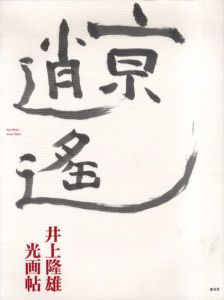 京
逍
遙
井上隆雄
光画帖